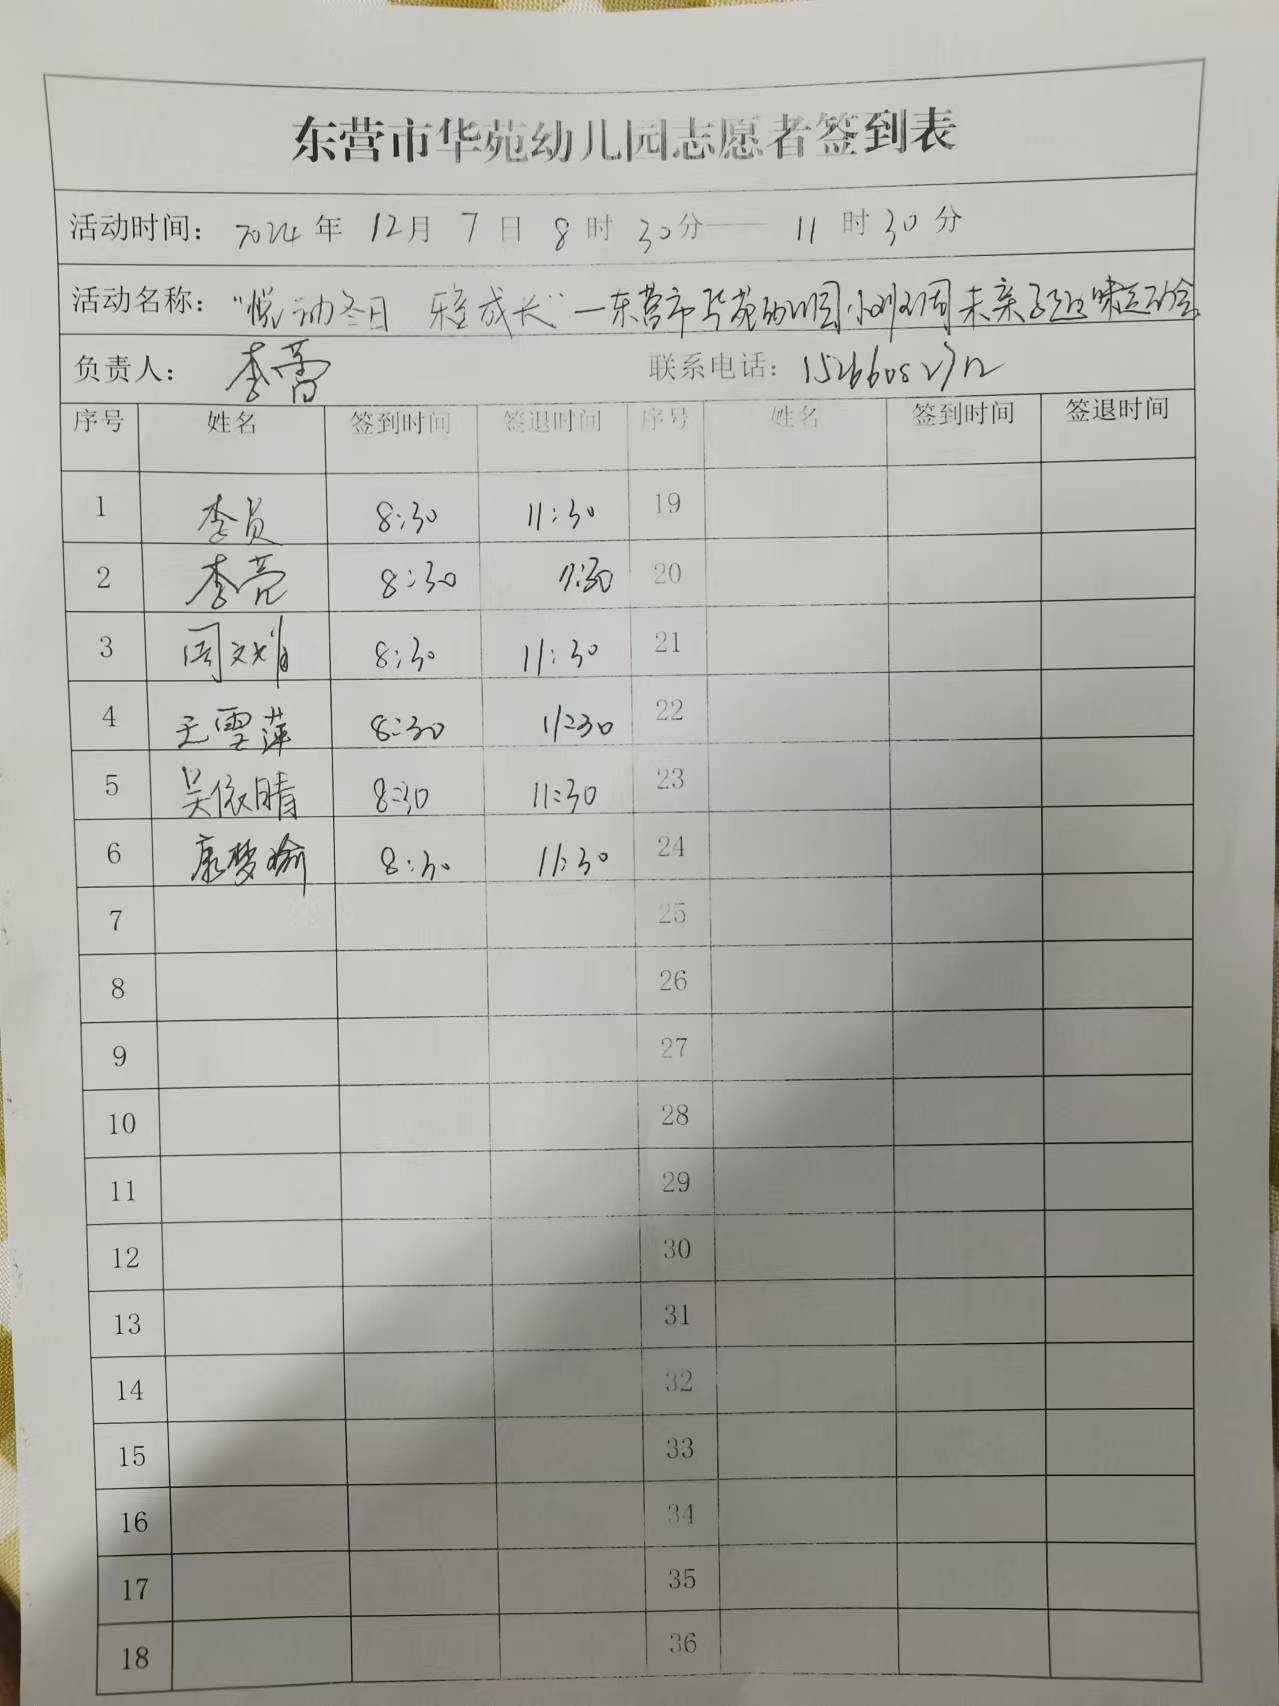 东营市华苑幼儿园志愿者签到表
活动时间： 2024 年 12 月 7 日 8 时 30 分—— 11 时 30 分
活动名称： “悦动冬日 乐享成长”—东营市华苑幼儿园小班周末亲子趣味运动会
负责人： 李 联系电话：
序号 姓名 签到时间 签退时间 序号 姓名 签到时间 签退时间
1 李员 8:30 11:30 19
2 李亮 8:30 11:30 20
3 周文娟 8:30 11:30 21
4 王雪萍 8:30 11:30 22
5 吴依晴 8:30 11:30 23
6 康梦瑜 8:30 11:30 24
7 25
8 26
9 27
10 28
11 29
12 30
13 31
14 32
15 33
16 34
17 35
18 36